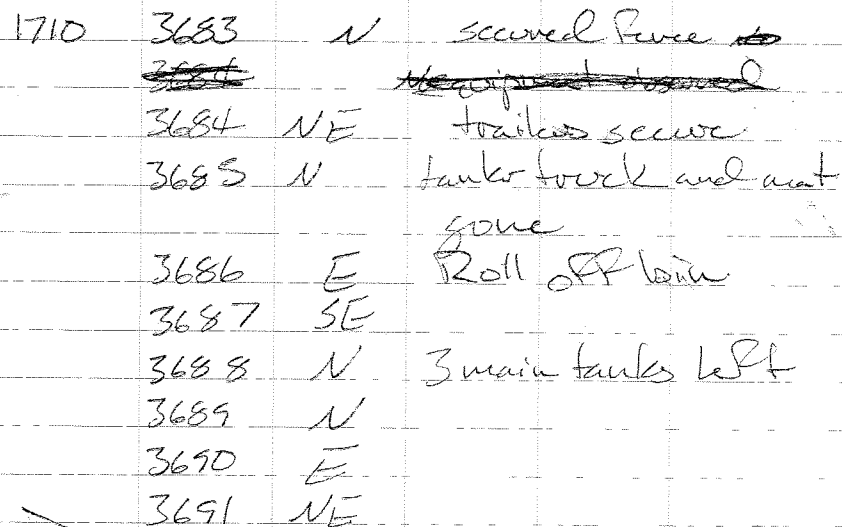 1710 3683 N secured fence
3684 NE trailers secure
3685 N tanker truck and mat
gone
3686 E Roll off bin
3687 SE
3688 N 3 main tanks left
3689 N
3690 E
3691 NE